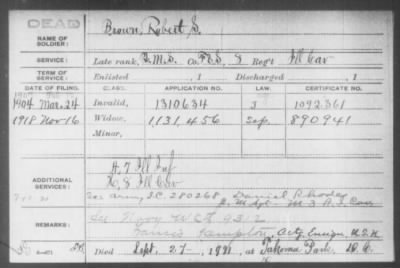 DEAD
NAME OF SOLDIER:
Brown, Robert S.
SERVICE:
Late rank, Q.M.S. Co. F&S, 8 Reg't Ill Cav
TERM OF SERVICE:
Enlisted , 1 Discharged , 1
DATE OF FILING. CLASS. APPLICATION NO. LAW. CERTIFICATE NO.
1904 Mar. 24 Invalid, 1310634 3 1092361
1918 Nov 16 Widow, 1131456 Sep. 890941
Minor,
ADDITIONAL SERVICES:
H, 7 Ill Inf
K, 8 Ill Cav
See Army, S.C. 280268 Daniel Rhodes
REMARKS:
See Navy W.C.
Francis Hampton, Actg Ensign, U.S.N.
Died Sept. 27, at Takoma Park, D.C.